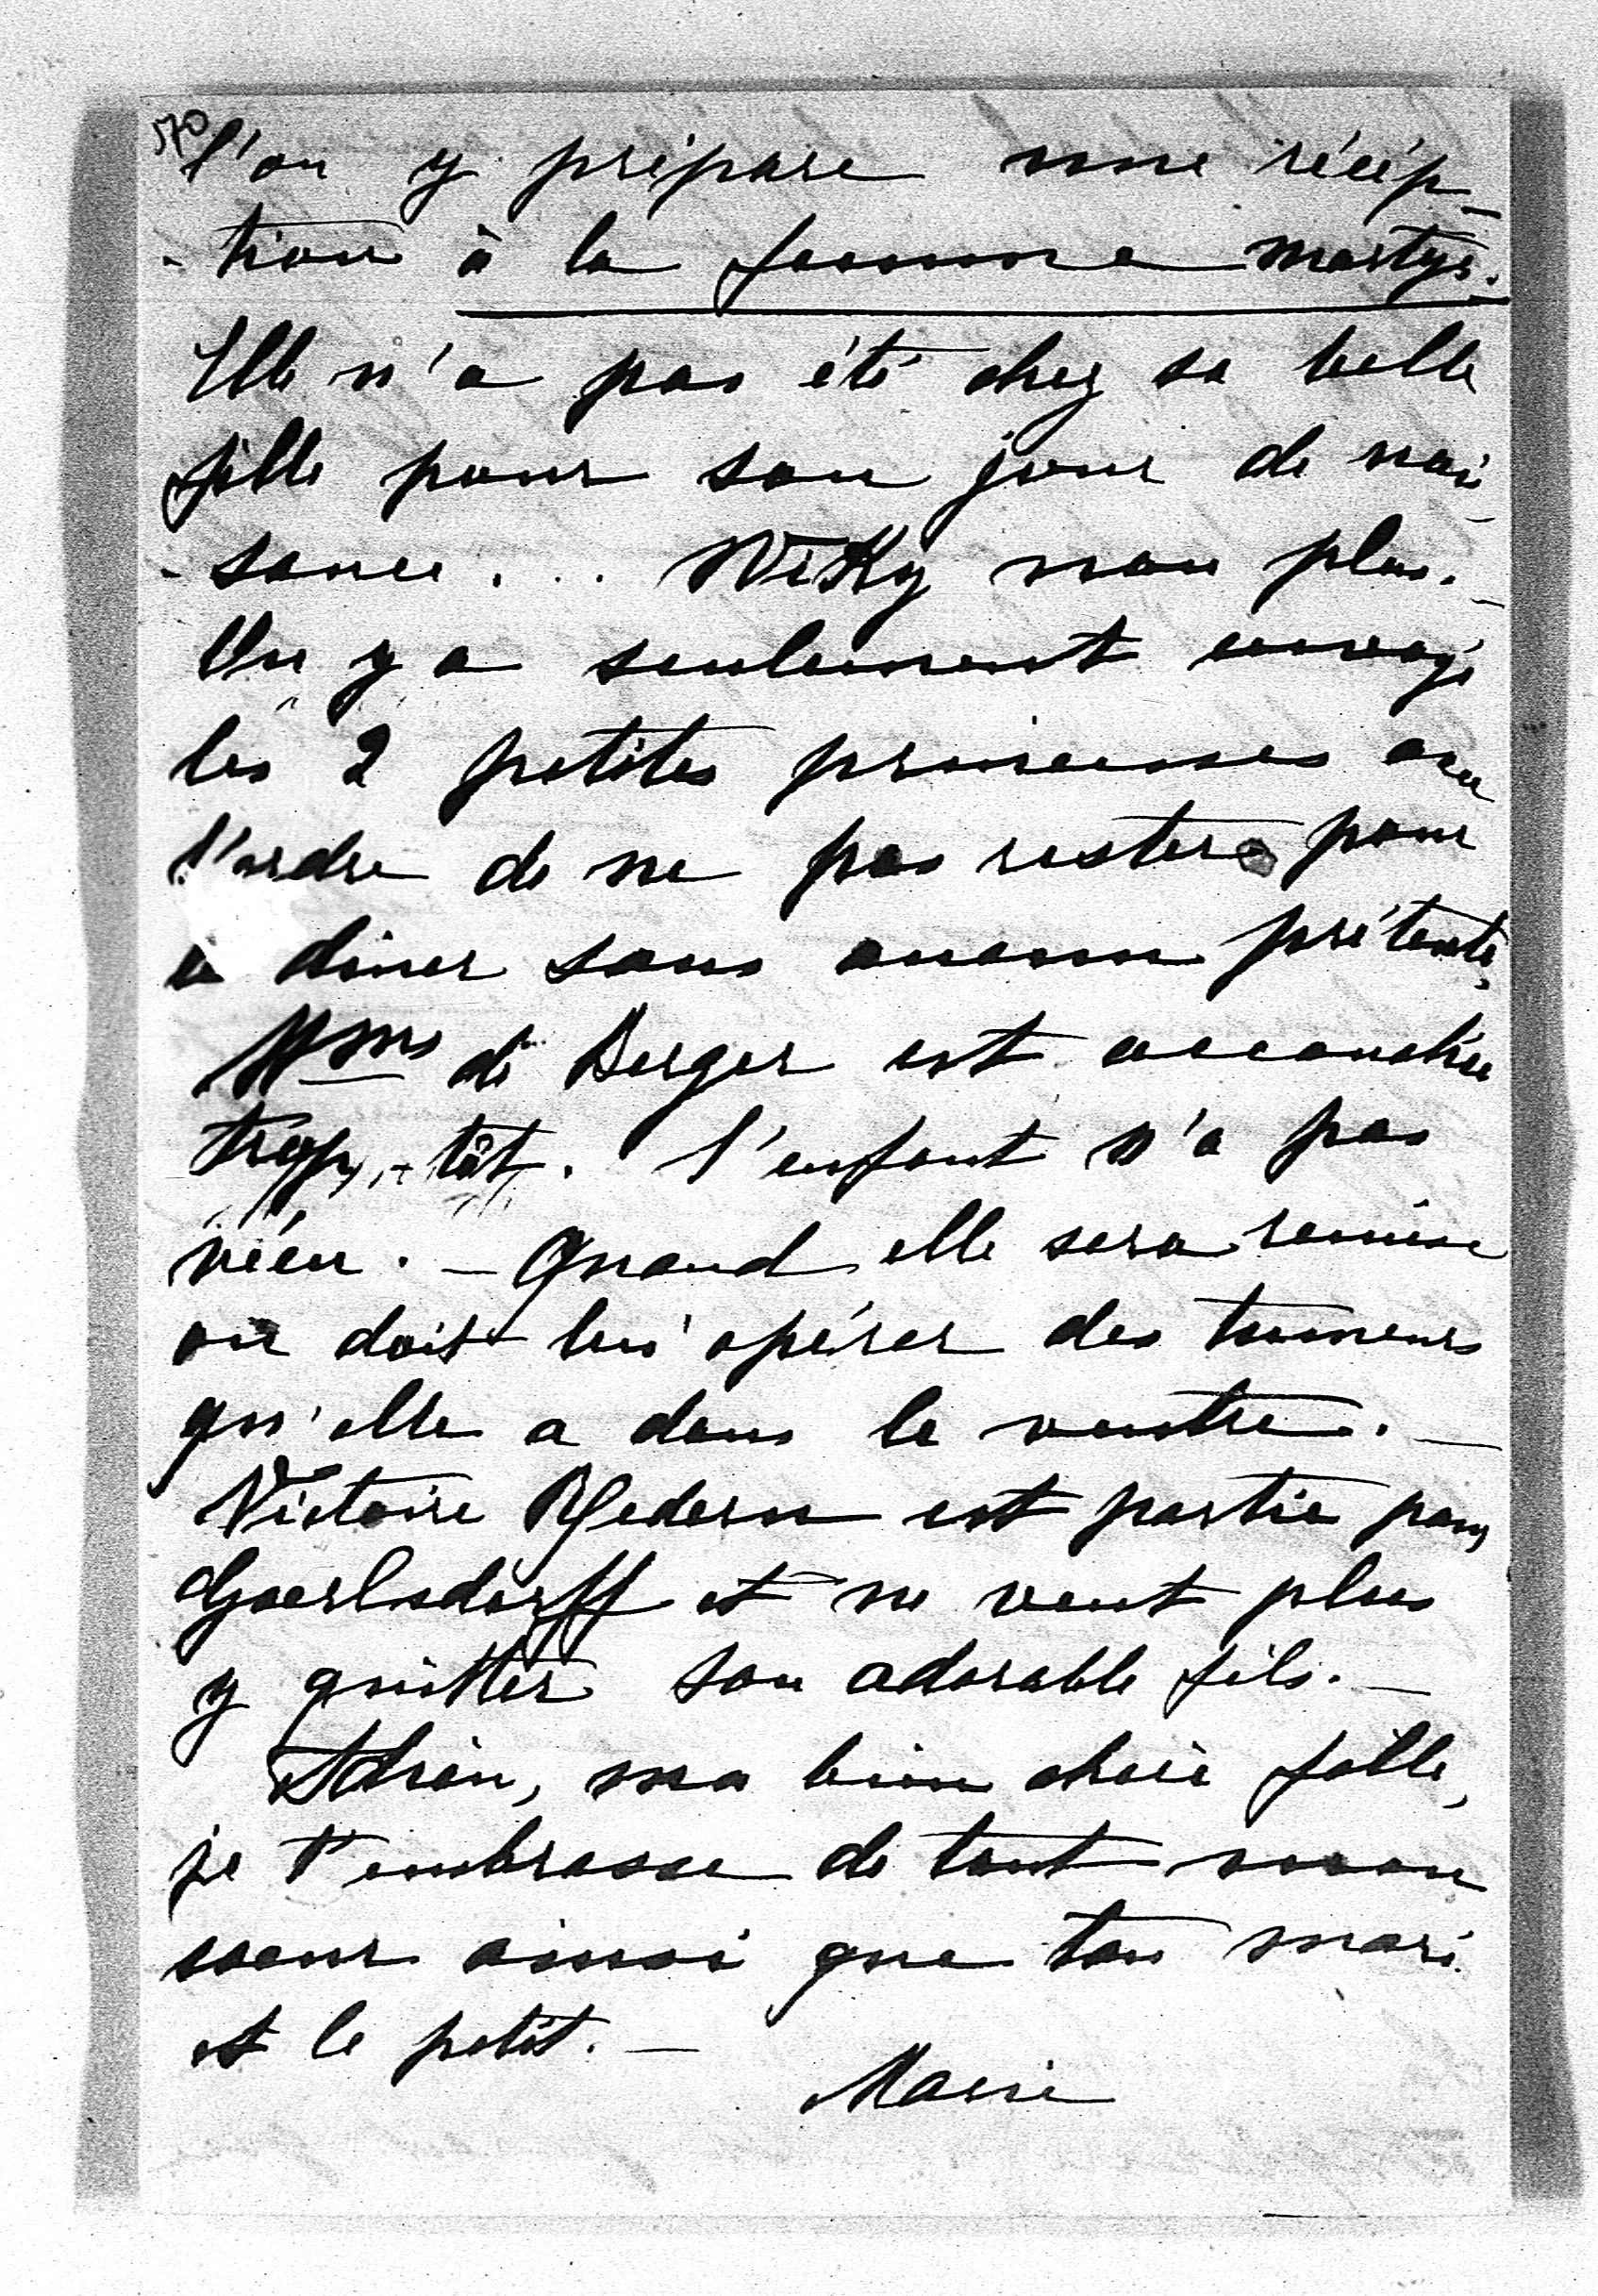 570
l'on y prépare une récep-
-tion à la femme martyr.
Elle n'a pas été chez sa belle
fille pour son jour de nais-
-sance... Viky non plus. -
On y a seulement envoyé
les 2 petites princesses avec
l'ordre de ne pas rester pour
le diner sous aucun prétexte,
Mme de Berger est accouchée
trop-tôt. L'enfant n'a pas
vécu. - Quand elle sera remise
on doit lui opérer des tumeurs
qu'elle a dans le ventre. -
Victoire Redern est partie pour
Goerlsdorff et ne veut plus
y quitter son adorable fils. -
Adieu, ma bien chère fille,
je t'embrasse de tout mon
coeur ainsi que ton mari
et le petit. -
Marie